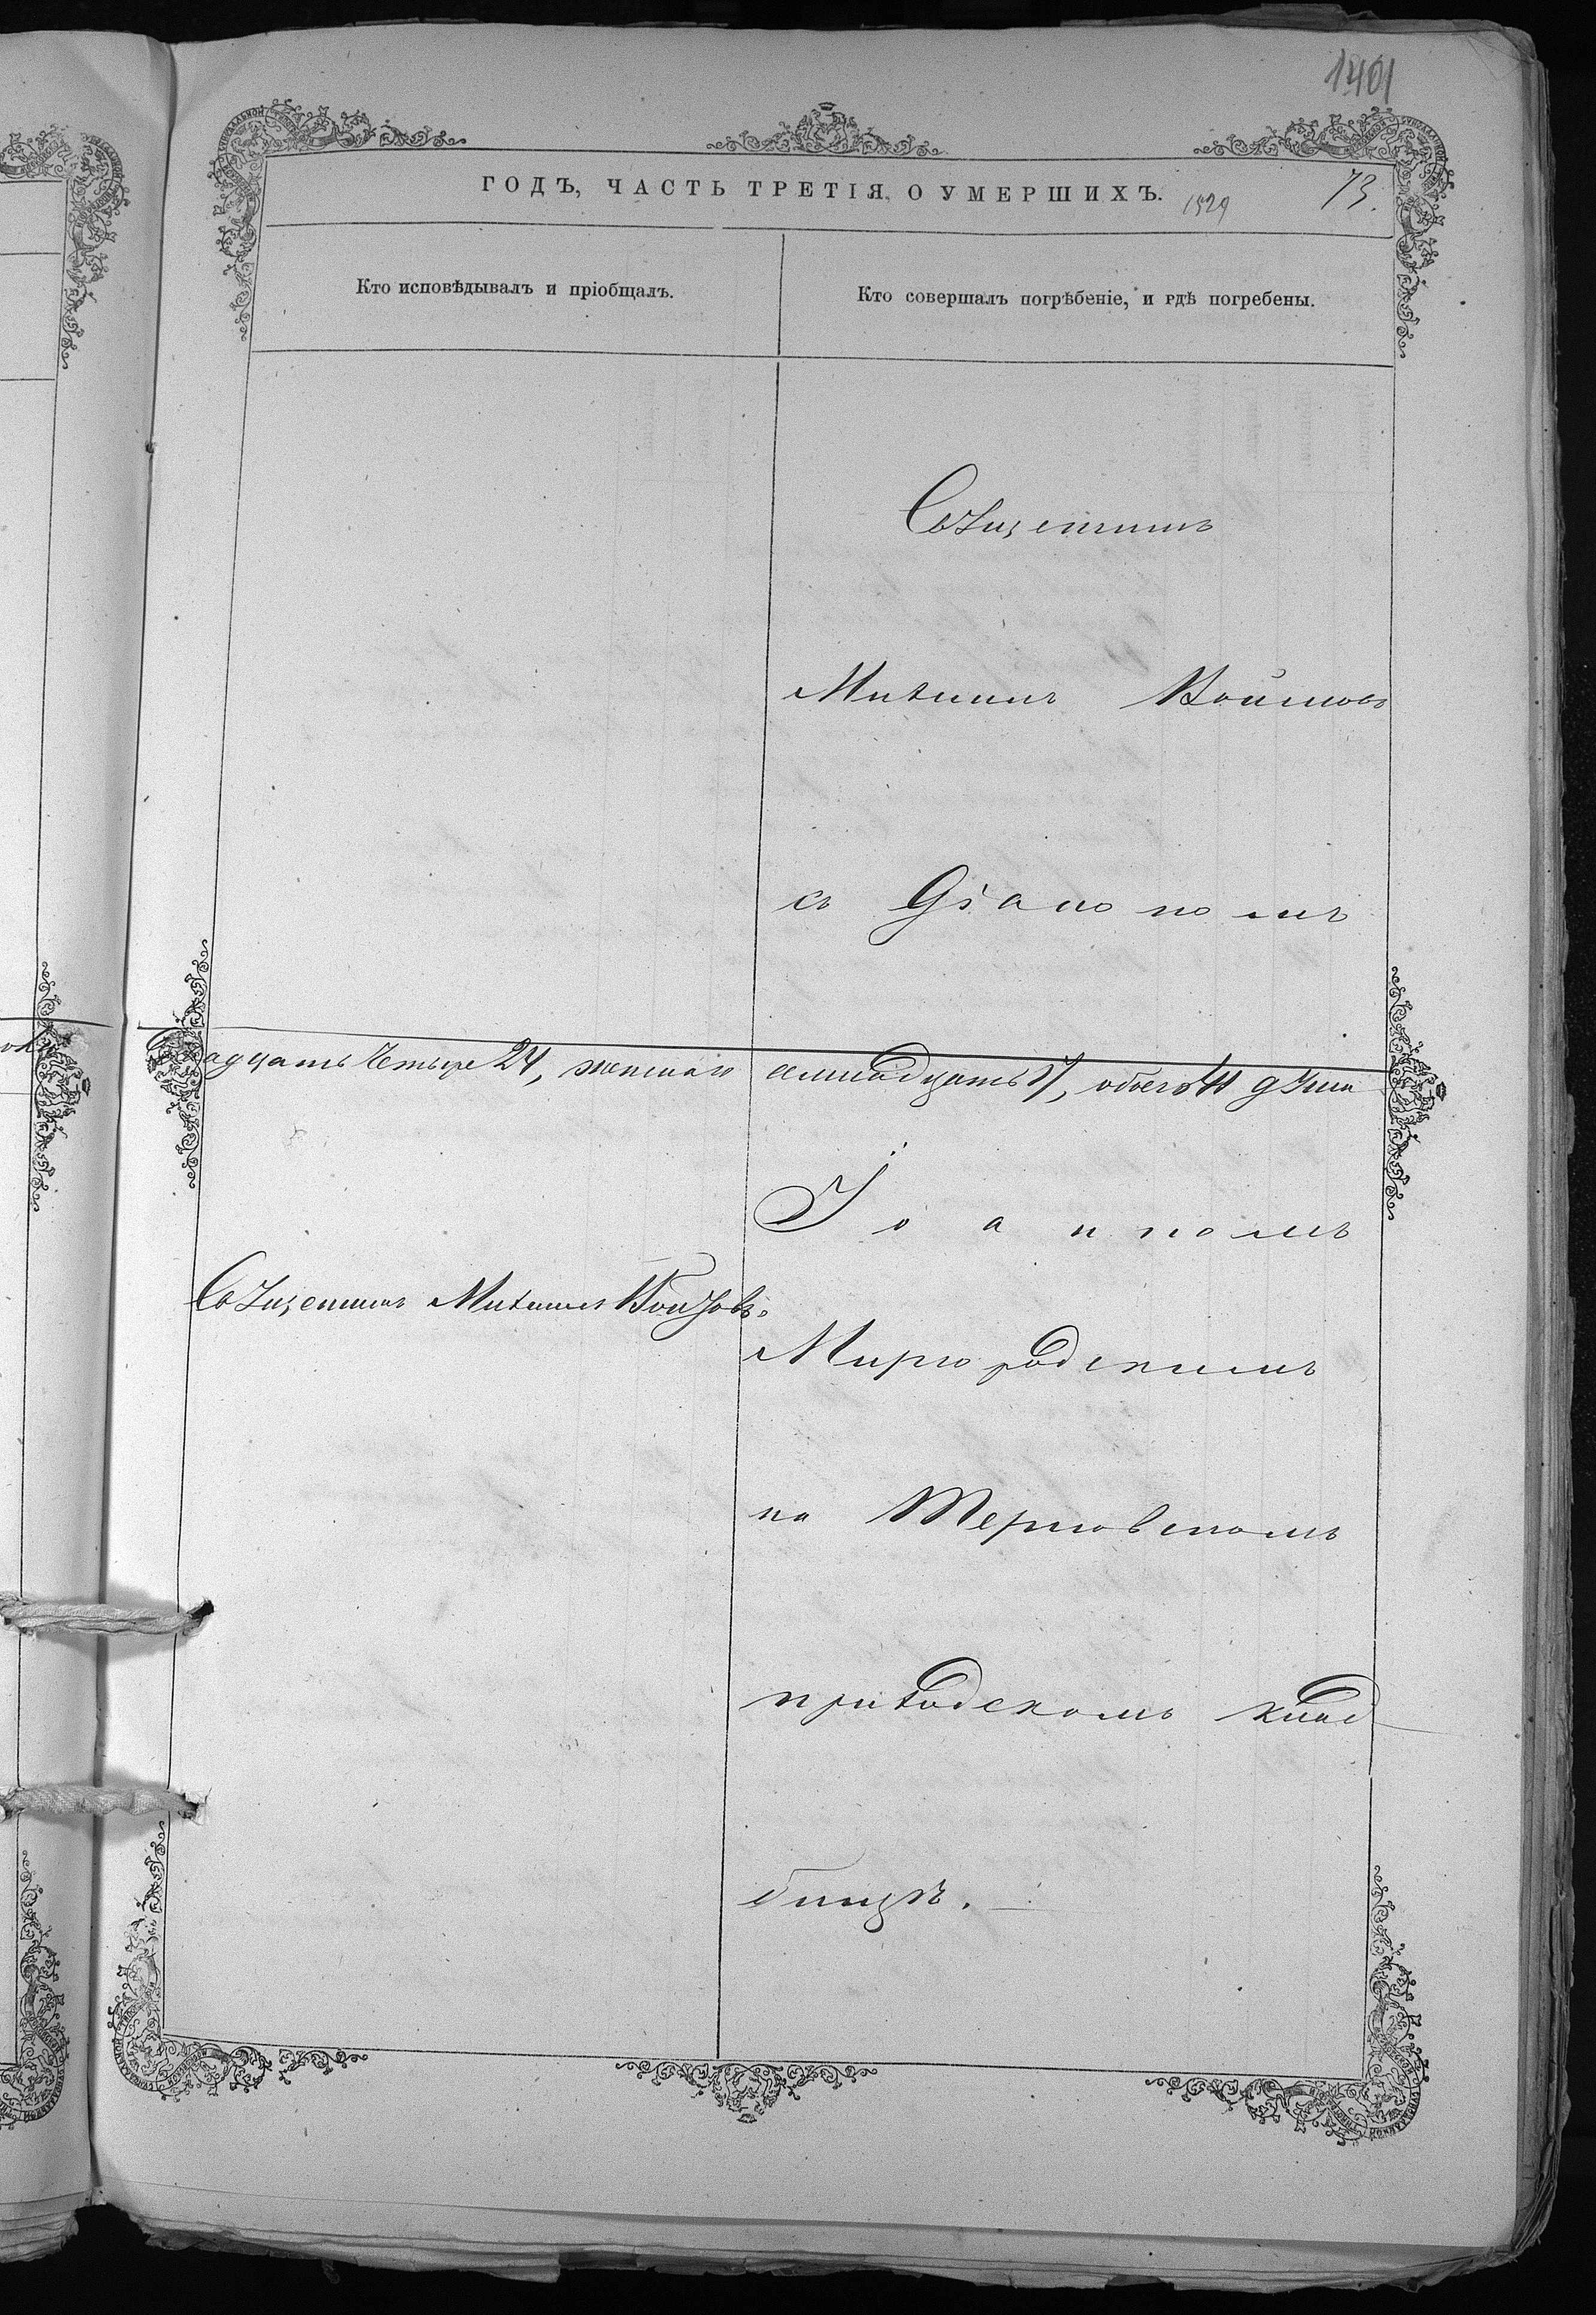 1401
ГОДЪ, ЧАСТЬ ТРЕТІЯ, О УМЕРШИХЪ. 1529 73.
Кто исповѣдывалъ и пріобщалъ.
Кто совершалъ погрѣбеніе, и гдѣ погребены.
Священникъ
Михаилъ
съ Діакономъ
адцать четыре 24, женскаго семнадцать 17, обоего 41 душа
Іоанномъ
Священникъ Михаилъ
Миргородскимъ
на Терновскомъ
приходскомъ клад
бищѣ.